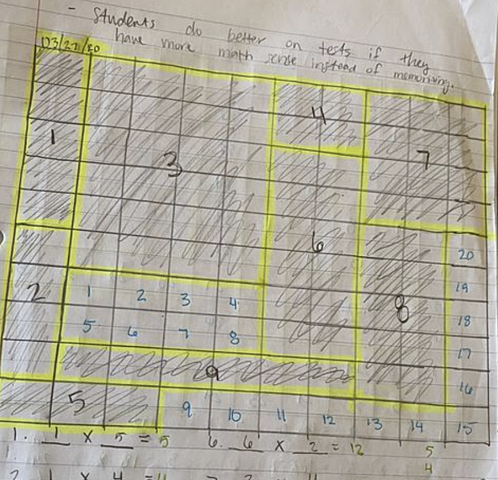 - Students do better on tests if they
have more math sense instead of memorizing.
03/27/20
4
1
3
7
6
20
2
1 2 3 4
8
19
5 6 7 8
18
9
17
16
5
9 10 11 12 13 14 15
1. 1 x 5 = 5 6. 6 x 2 = 12
5
4